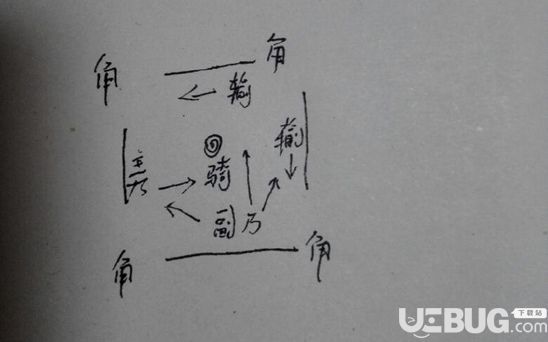 角
角
输
输
主T
骑
副
乃
角
角
UEBUG
下载站
.com